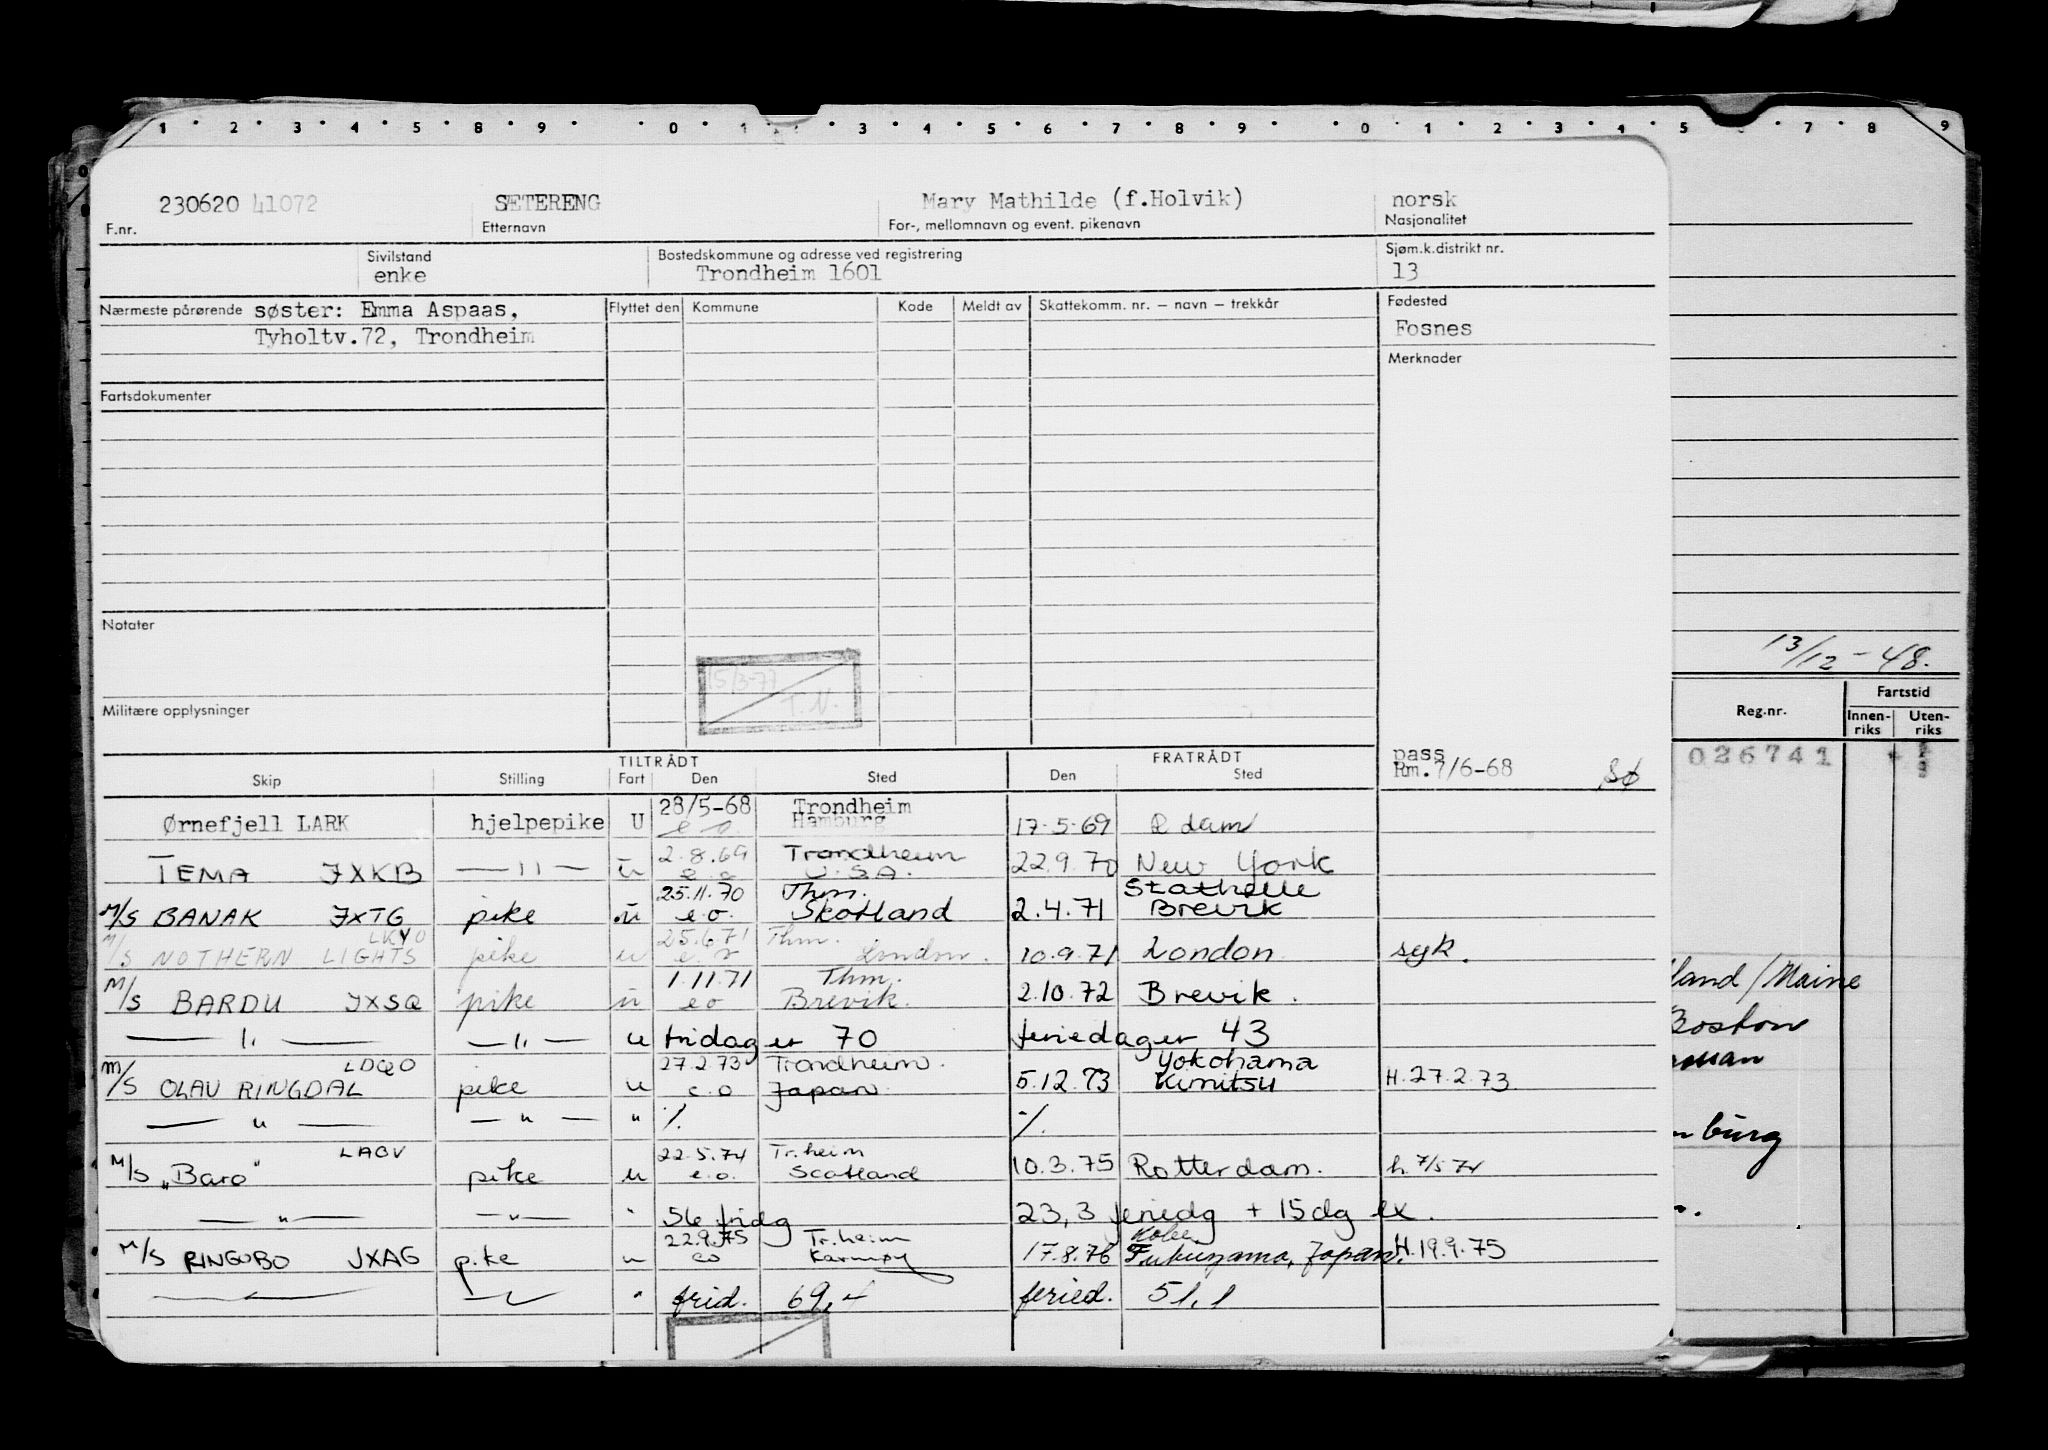 1 2 3 4 5 8 9 0 1 3 4 5 6 7 8 9 0 1 2 3 4 5 7 8 9
230620 41072 SÆTERENG Mary Mathilde (f.Holvik) norsk
F.nr. Etternavn For-, mellomnavn og event. pikenavn Nasjonalitet
Sivilstand Bostedskommune og adresse ved registrering Sjøm.k.distrikt nr.
enke Trondheim 1601 13
Nærmeste pårørende søster: Emma Aspaas, Flyttet den Kommune Kode Meldt av Skattekomm. nr. – navn – trekkår Fødested
Tyholtv.72, Trondheim Fosnes
Merknader
Fartsdokumenter
Notater
15/3-77
T.N.
Militære opplysninger
13/12-48.
Reg.nr. Fartstid
Innen-riks Uten-riks
026741
TILTRÅDT FRATRÅDT pass
Skip Stilling Fart Den Sted Den Sted Rm.7/6-68 Sø
28/5-68 Trondheim
Ørnefjell LARK hjelpepike U e o Hamburg 17-5-69 R dam
2.8.69 Trondheim
TEMA JXKB — " — u e.o U.S.A. 22.9.70 New York
25.11.70 Thm. Stathelle
M/S BANAK JXTG pike u e.o. Skotland 2.4.71 Brevik
LKYO 25.6.71 Thm.
M/S NOTHERN LIGHTS pike u e.o London. 10.9.71 London syk.
1.11.71 Thm.
M/S BARDU JXSQ pike u eo Brevik. 2.10.72 Brevik.
— " — — " — u fridager 70 feriedager 43
LDQO 27.2.73 Trondheim. Yokohama
M/S OLAV RINGDAL pike u e.o Japan. 5.12.73 Kimitsu H.27.2.73
— " — — " — " ./. ./.
LAOV 22.5.74 Tr.heim
M/S "Baro" pike u e.o. Scotland 10.3.75 Rotterdam. h.7/5 74
— " — — " — " 56 fridg 23,3 feriedg + 15dg ex.
22.9.75 Tr.heim Kobe
M/S RINGOBO JXAG pike u eo Karmøy 17.8.76 Fukuyama, Japan. H.19.9.75
— " — — " — " frid. 69,- feried. 51,1
land/Maine
Boston
burg